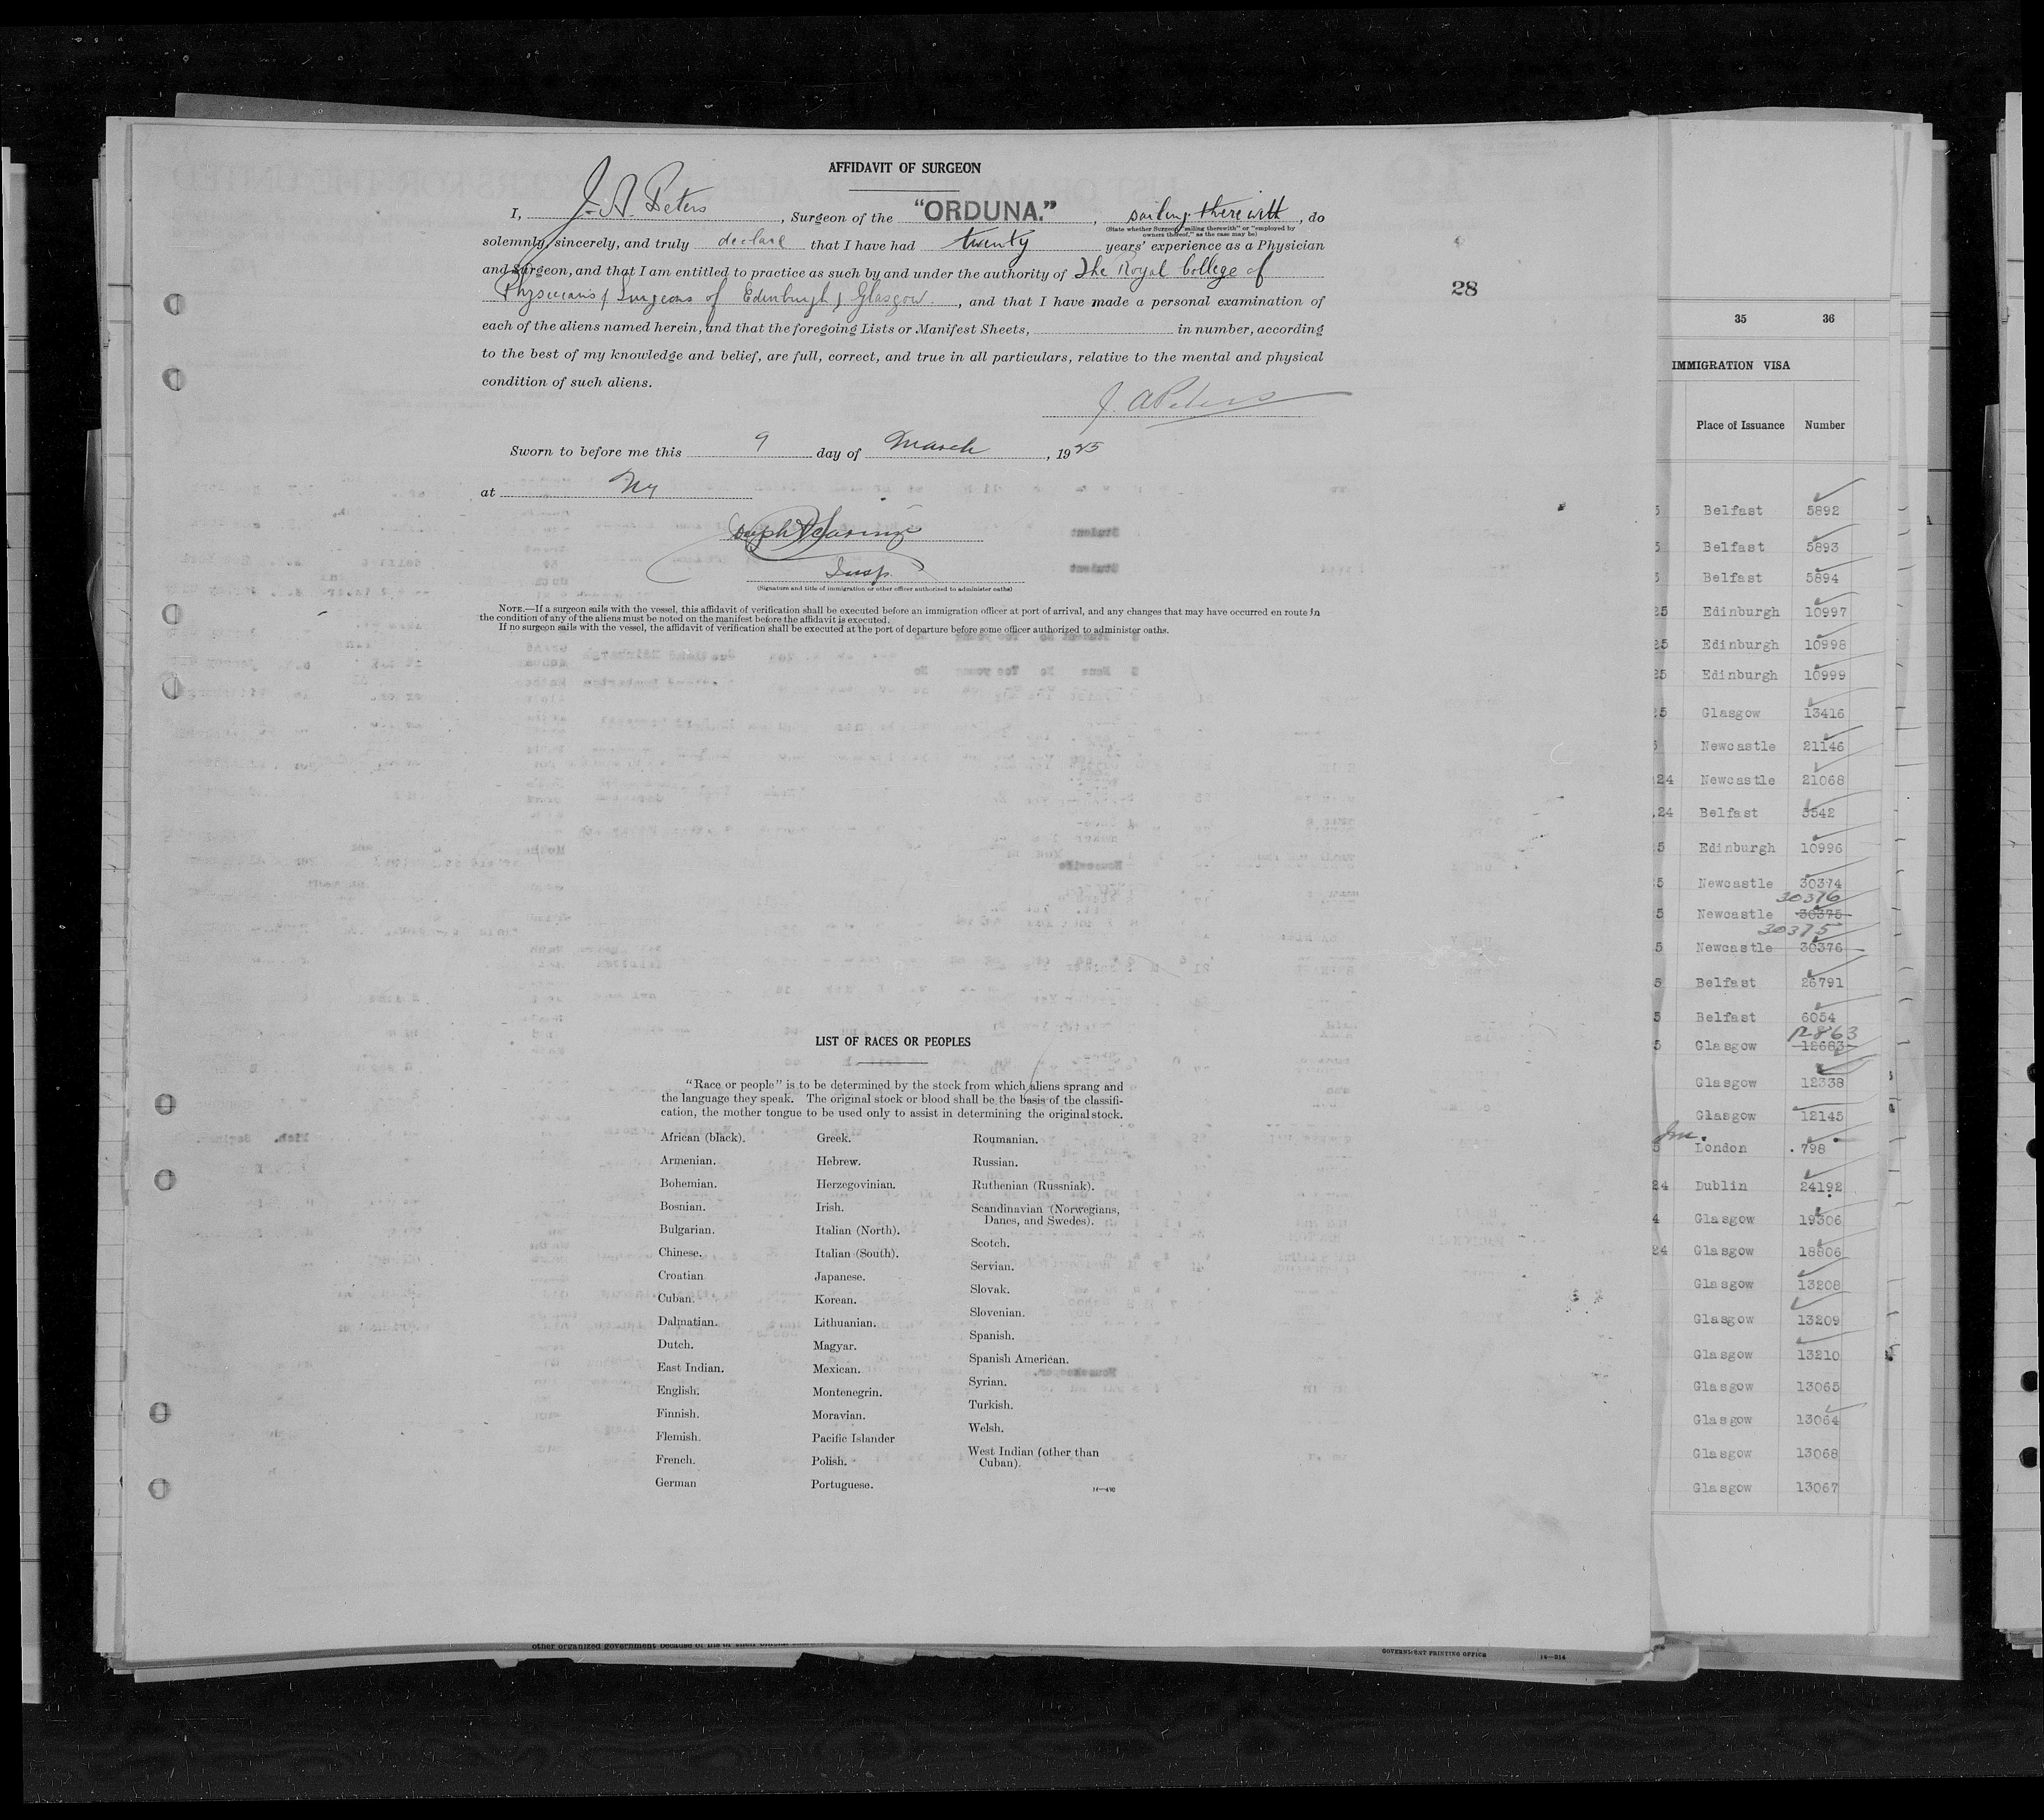 AFFIDAVIT OF SURGEON
I, J. A. Peters, Surgeon of the "ORDUNA.", sailing therewith, do
(State whether Surgeon "sailing therewith" or "employed by
owners thereof," as the case may be)
solemnly, sincerely, and truly declare that I have had twenty years' experience as a Physician
and Surgeon, and that I am entitled to practice as such by and under the authority of The Royal College of
Physicians & Surgeons of Edinburgh & Glasgow., and that I have made a personal examination of
each of the aliens named herein, and that the foregoing Lists or Manifest Sheets, in number, according
to the best of my knowledge and belief, are full, correct, and true in all particulars, relative to the mental and physical
condition of such aliens.
J. A Peters
Sworn to before me this 9 day of March, 1925
at Ny
Joseph
Insp.
(Signature and title of immigration or other officer authorized to administer oaths)
NOTE.—If a surgeon sails with the vessel, this affidavit of verification shall be executed before an immigration officer at port of arrival, and any changes that may have occurred en route in
the condition of any of the aliens must be noted on the manifest before the affidavit is executed.
If no surgeon sails with the vessel, the affidavit of verification shall be executed at the port of departure before some officer authorized to administer oaths.
28
LIST OF RACES OR PEOPLES
"Race or people" is to be determined by the stock from which aliens sprang and
the language they speak. The original stock or blood shall be the basis of the classifi-
cation, the mother tongue to be used only to assist in determining the original stock.
African (black).
Armenian.
Bohemian.
Bosnian.
Bulgarian.
Chinese.
Croatian
Cuban.
Dalmatian.
Dutch.
East Indian.
English.
Finnish.
Flemish.
French.
German
Greek.
Hebrew.
Herzegovinian.
Irish.
Italian (North).
Italian (South).
Japanese.
Korean.
Lithuanian.
Magyar.
Mexican.
Montenegrin.
Moravian.
Pacific Islander
Polish.
Portuguese.
Roumanian.
Russian.
Ruthenian (Russniak).
Scandinavian (Norwegians,
Danes, and Swedes).
Scotch.
Servian.
Slovak.
Slovenian.
Spanish.
Spanish American.
Syrian.
Turkish.
Welsh.
West Indian (other than
Cuban).
GOVERNMENT PRINTING OFFICE
14—314
35 36
IMMIGRATION VISA
Place of Issuance Number
5 Belfast 5892
5 Belfast 5893
5 Belfast 5894
25 Edinburgh 10997
25 Edinburgh 10998
25 Edinburgh 10999
25 Glasgow 13416
5 Newcastle 21146
24 Newcastle 21068
.24 Belfast 5542
5 Edinburgh 10996
5 Newcastle 30374
30376
5 Newcastle 30375
30375
5 Newcastle 30376
5 Belfast 26791
5 Belfast 6054
12863
5 Glasgow 12683
Glasgow 12338
Glasgow 12145
5 London 798
24 Dublin 24192
4 Glasgow 19306
24 Glasgow 18806
Glasgow 13208
Glasgow 13209
Glasgow 13210
Glasgow 13065
Glasgow 13064
Glasgow 13068
Glasgow 13067